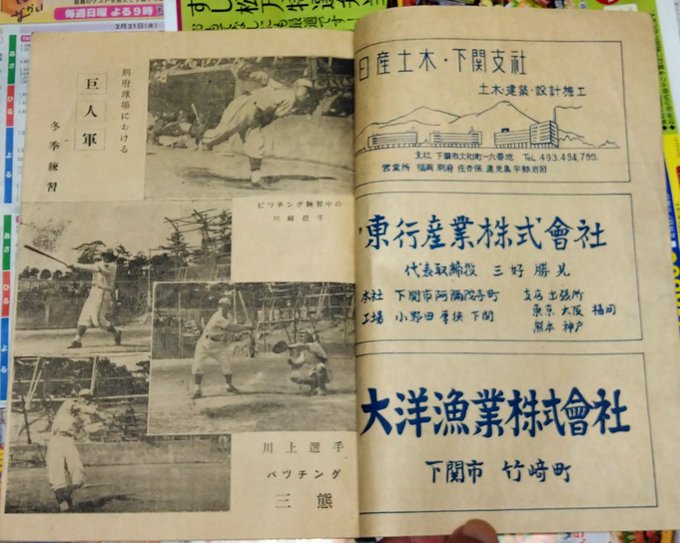 別府球場における
巨人軍
冬季練習
ピツチング練習中の
川崎投手
川上選手
バツチング
三態
日産土木・下関支社
土木・建築・設計施工
支社 下関市大和町一六番地 TEL 493.494.799.
営業所 福岡 別府 佐世保 鹿児島 宇部 岩国
東行産業株式會社
代表取締役 三好勝晃
本社 下関市阿彌陀寺町
工場 小野田 厚狭 下関
支店出張所
東京 大阪 福岡
熊本 神戸
大洋漁業株式會社
下関市 竹崎町
毎週日曜 よる9時
2月21日(水)
あさ
ひる
よる
あさ
ひる
よる